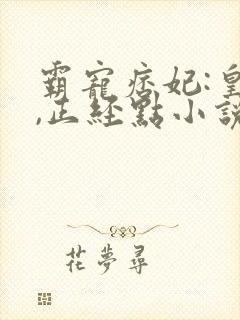 霸寵痞妃:皇
,正經點小說
花夢尋